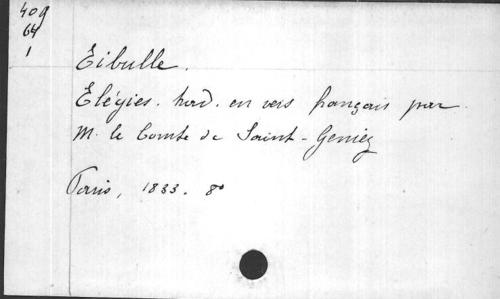 409
64
1
Tibulle.
Elégies. trad. en vers français par
M. le Comte de Saint-Geniez
Paris, 1833. 8°